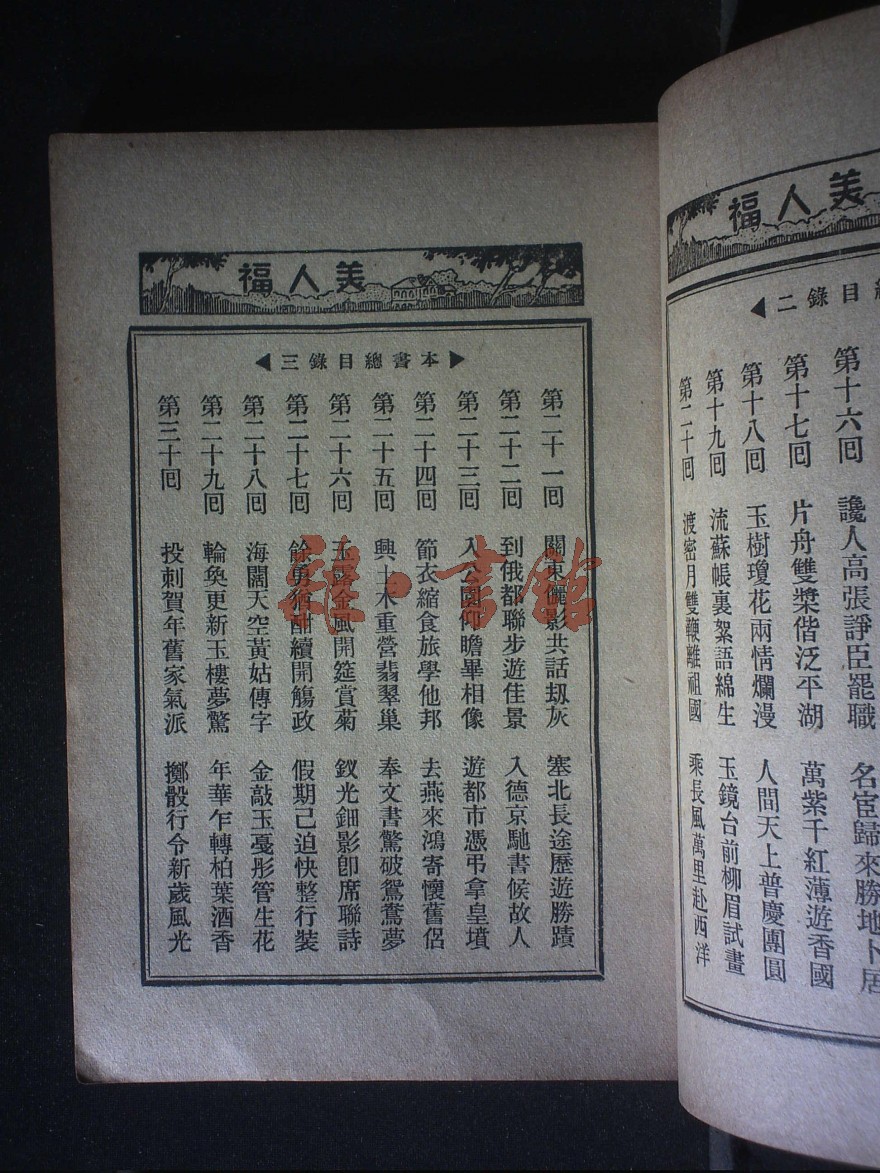 美人福
◀二錄目總
第十六回 讒人高張諍臣罷職 名宦歸來勝地卜居
第十七回 片舟雙槳偕泛平湖 萬紫千紅薄遊香國
第十八回 玉樹瓊花兩情爛漫 人間天上普慶團圓
第十九回 流蘇帳裏絮語綿生 玉鏡台前柳眉試畫
第二十回 渡密月雙鞭離祖國 乘長風萬里赴西洋
美人福
▶本書總目錄三◀
第二十一回 關東儷影共話刼灰 塞北長途歷遊勝蹟
第二十二回 到俄都聯步遊佳景 入德京馳書候故人
第二十三回 入公園仰瞻畢相像 遊都市憑弔拿皇墳
第二十四回 節衣縮食旅學他邦 去燕來鴻寄懷舊侶
第二十五回 興土木重營翡翠巢 奉文書驚破鴛鴦夢
第二十六回 玉露金風開筵賞菊 釵光鈿影卽席聯詩
第二十七回 餘勇猶酣續開觴政 假期已迫快整行裝
第二十八回 海闊天空黃姑傳字 金敲玉戞彤管生花
第二十九回 輪奐更新玉樓夢驚 年華乍轉柏葉酒香
第三十回 投刺賀年舊家氣派 擲骰行令新歲風光
雜·書館